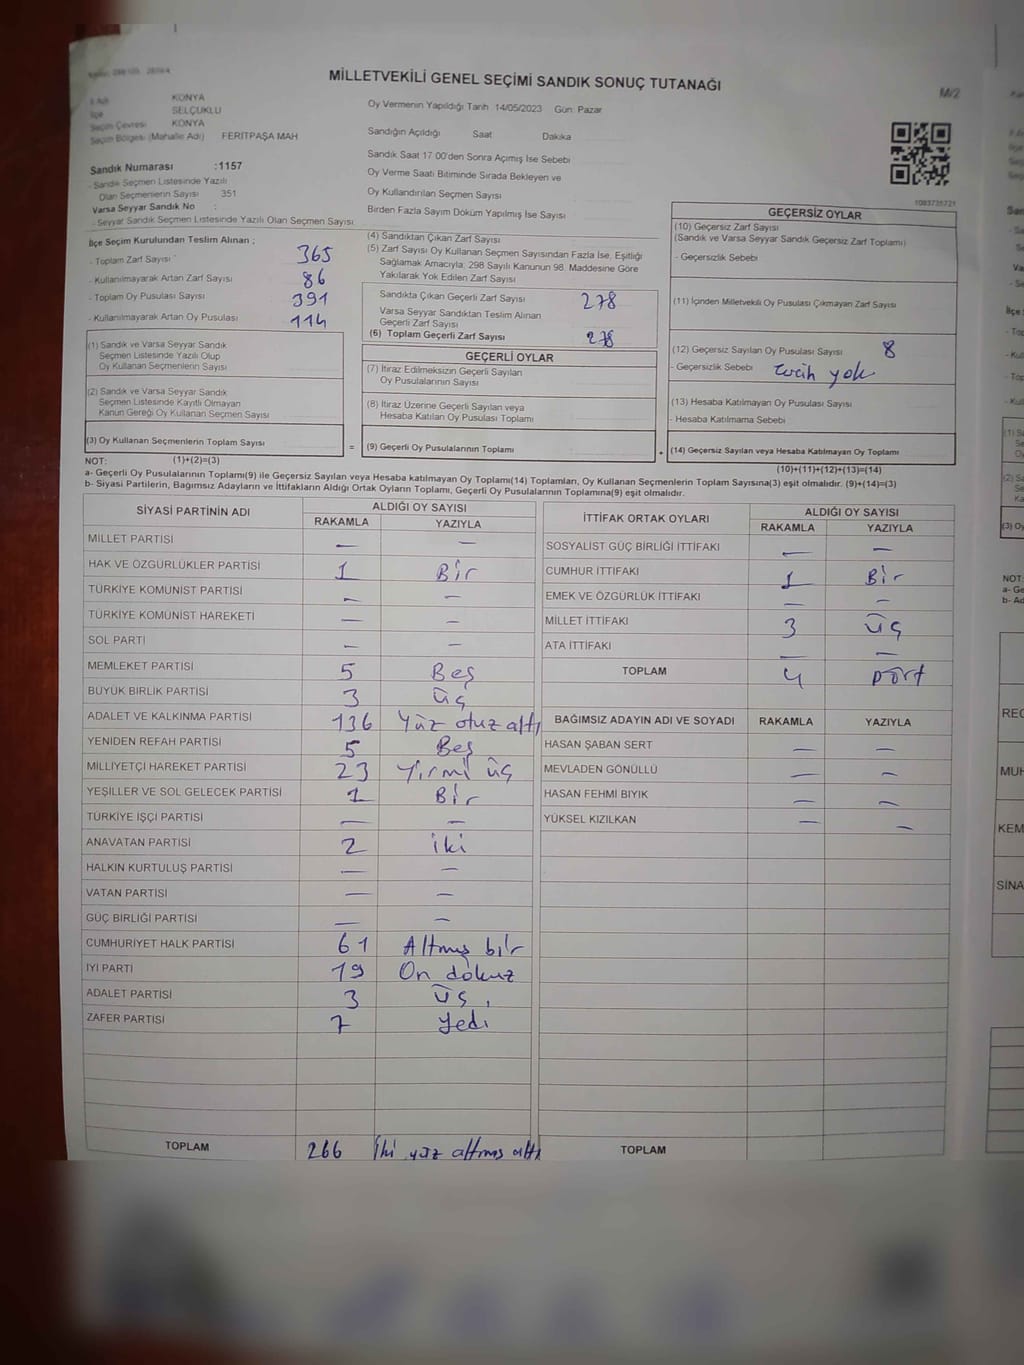 MİLLETVEKİLİ GENEL SEÇİMİ SANDIK SONUÇ TUTANAĞI
M/2
İlçe
Seçim Çevresi
Seçim Bölgesi (Mahalle Adı)
KONYA
SELÇUKLU
KONYA
FERİTPAŞA MAH
Sandık Numarası :1157
- Sandık Seçmen Listesinde Yazılı
Olan Seçmenlerin Sayısı 351
Varsa Seyyar Sandık No :
- Seyyar Sandık Seçmen Listesinde Yazılı Olan Seçmen Sayısı
Oy Vermenin Yapıldığı Tarih 14/05/2023 Gün: Pazar
Sandığın Açıldığı Saat Dakika
Sandık Saat 17 00'den Sonra Açımış İse Sebebi
Oy Verme Saati Bitiminde Sırada Bekleyen ve
Oy Kullandırılan Seçmen Sayısı
Birden Fazla Sayım Döküm Yapılmış İse Sayısı
1083735721
İlçe Seçim Kurulundan Teslim Alınan ;
- Toplam Zarf Sayısı 365
- Kullanılmayarak Artan Zarf Sayısı 86
- Toplam Oy Pusulası Sayısı 391
- Kullanılmayarak Artan Oy Pusulası 114
(1) Sandık ve Varsa Seyyar Sandık
Seçmen Listesinde Yazılı Olup
Oy Kullanan Seçmenlerin Sayısı
(2) Sandık ve Varsa Seyyar Sandık
Seçmen Listesinde Kayıtlı Olmayan
Kanun Gereği Oy Kullanan Seçmen Sayısı
(3) Oy Kullanan Seçmenlerin Toplam Sayısı
(4) Sandıktan Çıkan Zarf Sayısı
(5) Zarf Sayısı Oy Kullanan Seçmen Sayısından Fazla İse, Eşitliği
Sağlamak Amacıyla, 298 Sayılı Kanunun 98. Maddesine Göre
Yakılarak Yok Edilen Zarf Sayısı
Sandıkta Çıkan Geçerli Zarf Sayısı 278
Varsa Seyyar Sandıktan Teslim Alınan
Geçerli Zarf Sayısı
(6) Toplam Geçerli Zarf Sayısı 278
GEÇERLİ OYLAR
(7) İtiraz Edilmeksizin Geçerli Sayılan
Oy Pusulalarının Sayısı
(8) İtiraz Üzerine Geçerli Sayılan veya
Hesaba Katılan Oy Pusulası Toplamı
= (9) Geçerli Oy Pusulalarının Toplamı
GEÇERSİZ OYLAR
(10) Geçersiz Zarf Sayısı
(Sandık ve Varsa Seyyar Sandık Geçersiz Zarf Toplamı)
- Geçersizlik Sebebi
(11) İçinden Milletvekili Oy Pusulası Çıkmayan Zarf Sayısı
(12) Geçersiz Sayılan Oy Pusulası Sayısı 8
- Geçersizlik Sebebi tercih yok
(13) Hesaba Katılmayan Oy Pusulası Sayısı
- Hesaba Katılmama Sebebi
+ (14) Geçersiz Sayılan veya Hesaba Katılmayan Oy Toplamı
NOT: (1)+(2)=(3)
(10)+(11)+(12)+(13)=(14)
a- Geçerli Oy Pusulalarının Toplamı(9) ile Geçersiz Sayılan veya Hesaba katılmayan Oy Toplamı(14) Toplamları, Oy Kullanan Seçmenlerin Toplam Sayısına(3) eşit olmalıdır. (9)+(14)=(3)
b- Siyasi Partilerin, Bağımsız Adayların ve İttifakların Aldığı Ortak Oyların Toplamı, Geçerli Oy Pusulalarının Toplamına(9) eşit olmalıdır.
SİYASİ PARTİNİN ADI ALDIĞI OY SAYISI
RAKAMLA YAZIYLA
MİLLET PARTİSİ — —
HAK VE ÖZGÜRLÜKLER PARTİSİ 1 Bir
TÜRKİYE KOMÜNİST PARTİSİ — —
TÜRKİYE KOMÜNİST HAREKETİ — —
SOL PARTİ — —
MEMLEKET PARTİSİ 5 Beş
BÜYÜK BİRLİK PARTİSİ 3 üç
ADALET VE KALKINMA PARTİSİ 136 Yüz otuz altı
YENİDEN REFAH PARTİSİ 5 Beş
MİLLİYETÇİ HAREKET PARTİSİ 23 Yirmi üç
YEŞİLLER VE SOL GELECEK PARTİSİ 1 Bir
TÜRKİYE İŞÇİ PARTİSİ — —
ANAVATAN PARTİSİ 2 iki
HALKIN KURTULUŞ PARTİSİ — —
VATAN PARTİSİ — —
GÜÇ BİRLİĞİ PARTİSİ — —
CUMHURİYET HALK PARTİSİ 61 Altmış bir
İYİ PARTİ 19 On dokuz
ADALET PARTİSİ 3 üş
ZAFER PARTİSİ 7 Yedi
TOPLAM 266 İki yüz altmış altı
İTTİFAK ORTAK OYLARI ALDIĞI OY SAYISI
RAKAMLA YAZIYLA
SOSYALİST GÜÇ BİRLİĞİ İTTİFAKI — —
CUMHUR İTTİFAKI 1 Bir
EMEK VE ÖZGÜRLÜK İTTİFAKI — —
MİLLET İTTİFAKI 3 üç
ATA İTTİFAKI — —
TOPLAM 4 Dört
BAĞIMSIZ ADAYIN ADI VE SOYADI RAKAMLA YAZIYLA
HASAN ŞABAN SERT — —
MEVLADEN GÖNÜLLÜ — —
HASAN FEHMİ BIYIK — —
YÜKSEL KIZILKAN — —
TOPLAM
NOT:
REC
MUH
KEM
SİNA